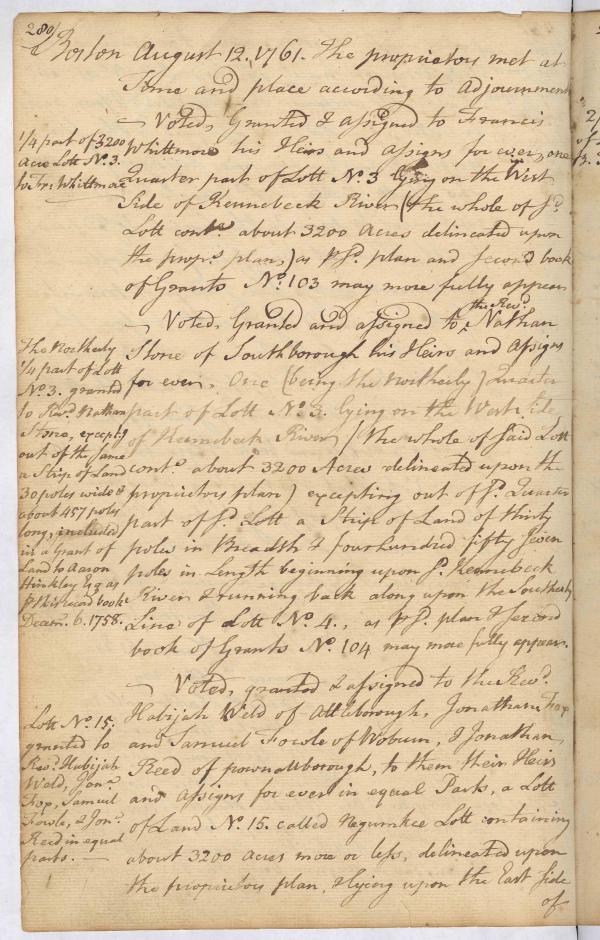 280/
Boston August 12. 1761. The proprietors met at
Time and place according to Adjournment
— Voted, Granted & assigned to Francis
1/4 part of 3200
Acre Lott No. 3.
to Fr: Whittmore
Whittmore his Heirs and assigns for ever, one
Quarter part of Lott No. 3 lying on the West
Side of Kennebeck River (the whole of sd.
Lott conte. about 3200 Acres delineated upon
the props. plan,) as p sd. plan and second book
of Grants No. 103 may more fully appear
— Voted, Granted and assigned to the Revd. Nathan
The Northerly
1/4 part of Lott
No. 3. granted
to Revd. Nathan
Stone, exceptg
out of the same
a Strip of Land
30 poles wide &
about 457 poles
long, included
in a Grant of
Land to Aaron
Hinkley Esq as
p this record book
Decem. 6. 1758.
Stone of Southborough his Heirs and Assigns
for ever, One (being the Northerly) Quarter
part of Lott No. 3. lying on the West side
of Kennebeck River (the whole of said Lott
conte. about 3200 Acres delineated upon the
proprietors plan) excepting out of sd. Quarter
part of sd. Lott a Strip of Land of thirty
poles in Breadth & four hundred fifty seven
poles in Length beginning upon sd. Kennebeck
River & running back along upon the Southerly
Line of Lott No. 4., as p sd. plan & second
book of Grants No. 104 may more fully appear.
— Voted, granted & assigned to the Revd.
Lott No. 15.
granted to
Revd. Habijah
Weld, Jona.
Fox, Samuel
Fowle, & Jona.
Reed in equal
parts. —
Habijah Weld of Attleborough, Jonathan Fox
and Samuel Fowle of Woburn, & Jonathan
Reed of pownallborough, to them their Heirs
and Assigns for ever in equal Parts, a Lott
of Land No. 15. called Negumkee Lott containing
about 3200 acres more or less, delineated upon
the proprietors plan, & lying upon the East Side
of